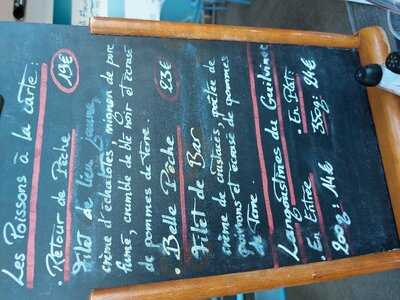 Les Poissons à la carte:
• Retour de Pêche 19€
Filet de lieu jaune,
crème d'échalotes, mignon de porc
fumé, crumble de blé noir et écrasé
de pommes de terre.
• Belle Pêche 23€
Filet de Bar
crème de crustacés, poêlée de
poivrons et écrasé de pommes
de Terre.
Langoustines du Guilvinec
• En Entrée En Plat:
200g: 14€ 350g: 24€